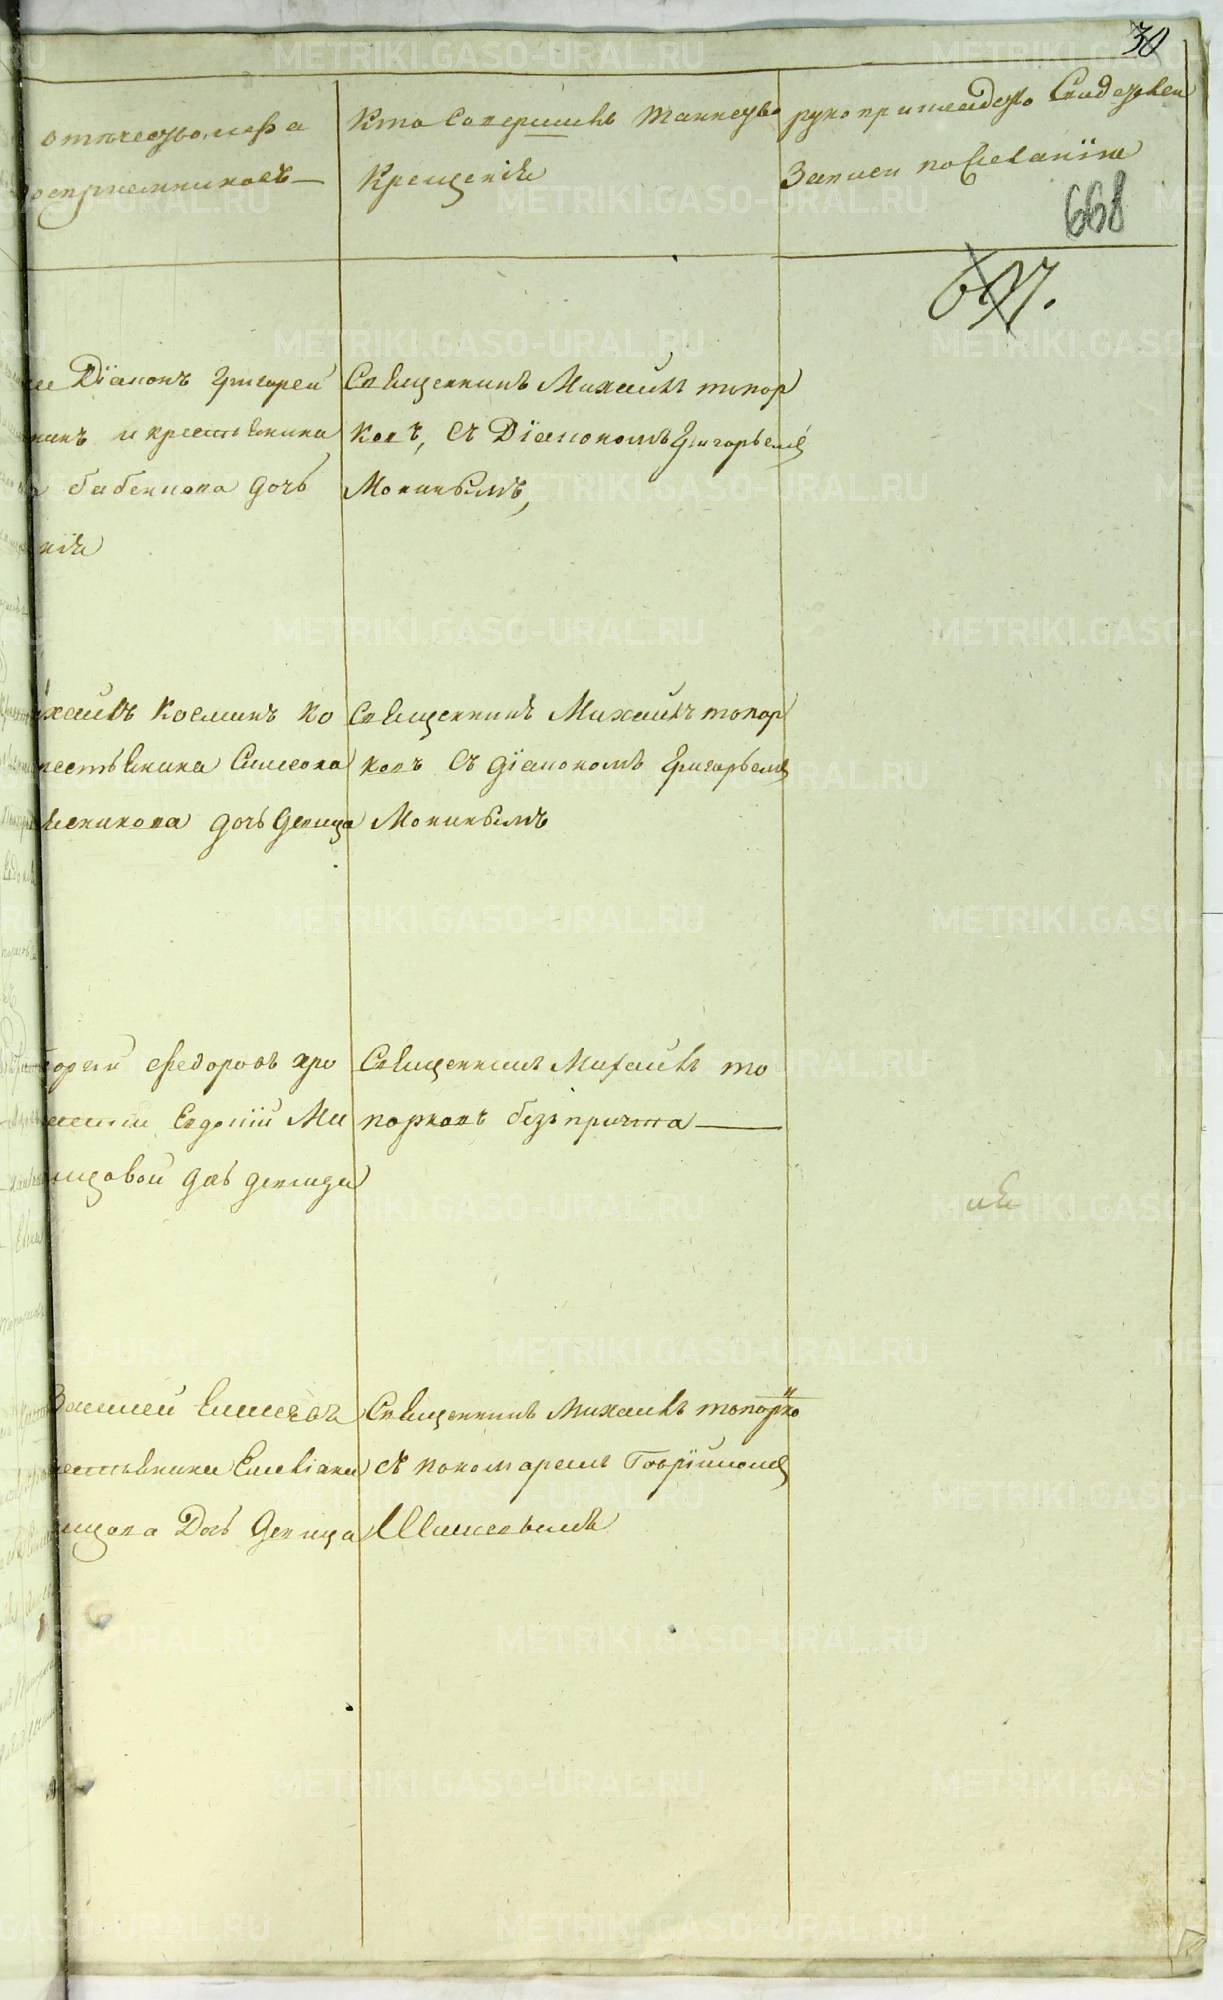 30
отъчество, и фа
воспрiемниковъ
Кто Совершилъ таинство
Крещенiя
рукоприкладство Свидетел
Записи по Желанiю
668
697.
Дiаконъ Григореи
нинъ и крестьянина
бабенкова дочь
нiя
Священникъ Михаилъ топор
ковъ, съ Дiакономъ Григорьемъ
Мокинымъ,
ихаилъ Косминъ Ко
рестьянина Симеона
дочь девица
Священникъ Михаилъ топор
ковъ съ дiакономъ Григорьемъ
Мокинымъ
Федоровъ хро
Евдокiи Ми
дочь девица
Священникъ Михаилъ то
порковъ безъ причта
Елисеевъ
рестьянина Емелiана
Дочь Девица
Священникъ Михаилъ топорко
съ пономаремъ Гавриломъ
Шишевымъ
METRIKI.GASO-URAL.RU